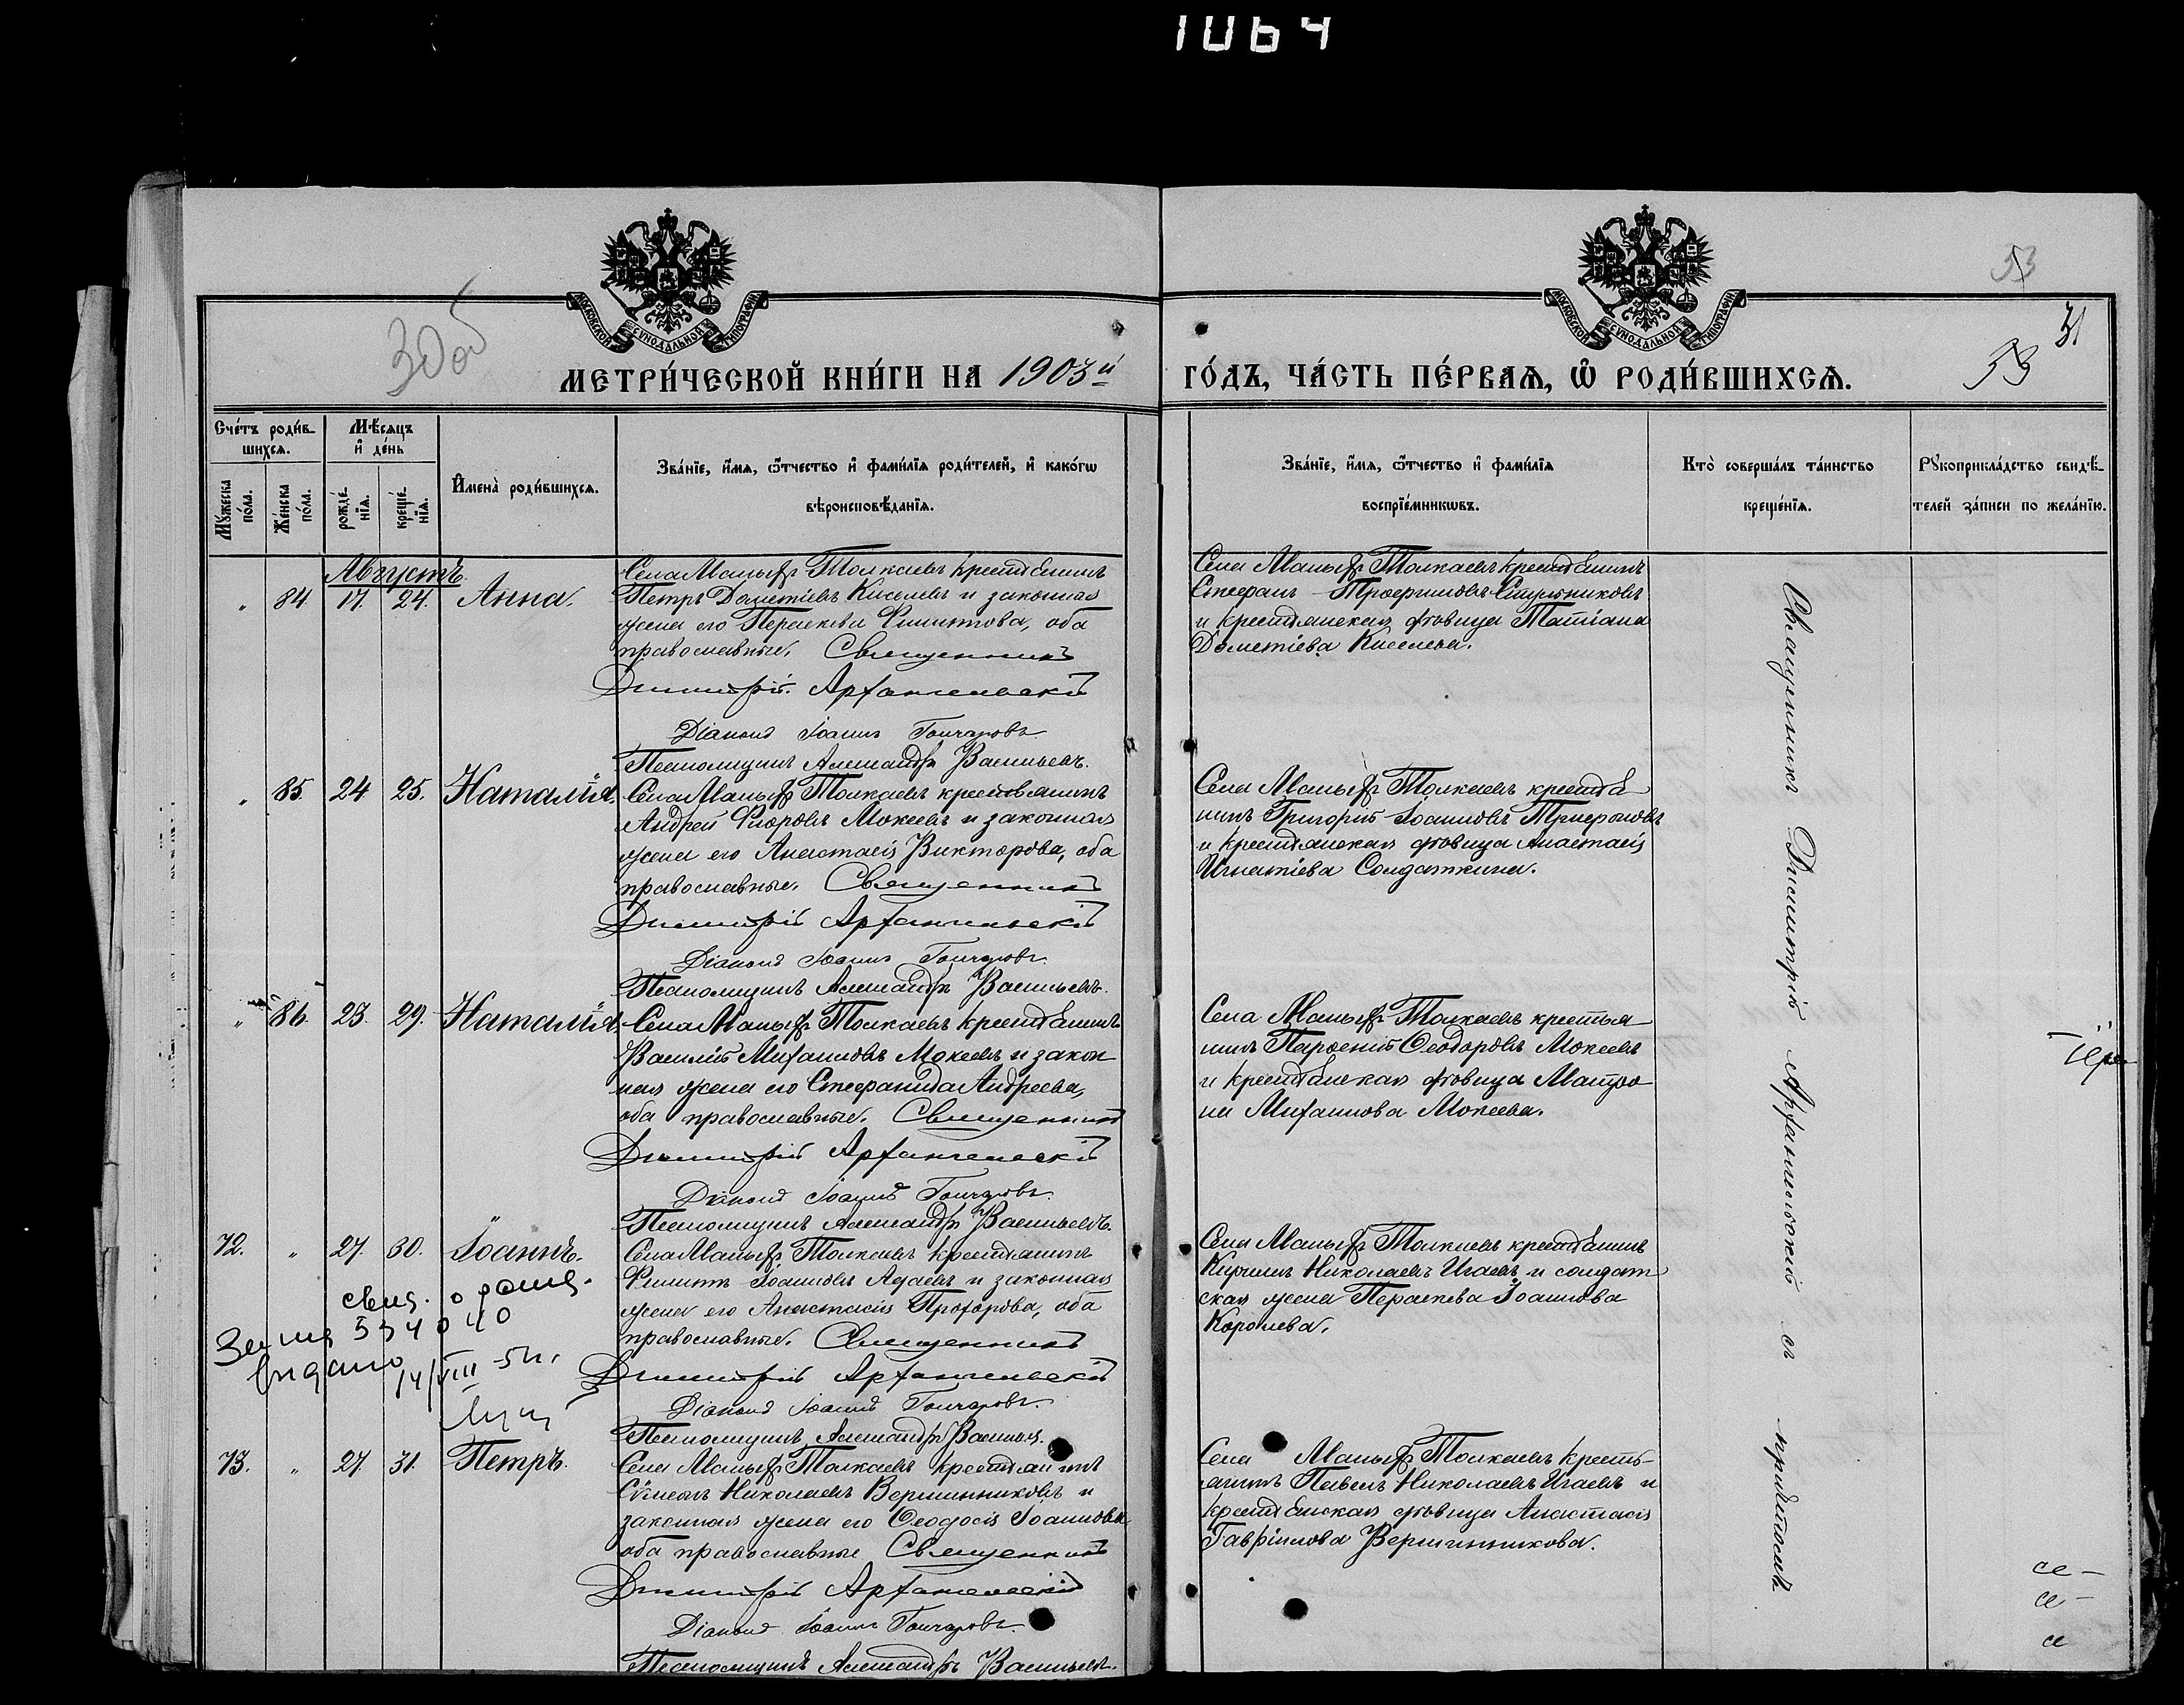 1064
МОСКОВСКОЙ СѴНОДАЛЬНОЙ ТИПОГРАФІИ
МОСКОВСКОЙ СѴНОДАЛЬНОЙ ТИПОГРАФІИ
30об
53
31
МЕТРИ́ЧЕСКОЙ КНИ́ГИ НА 1903й
ГО́ДЪ, ЧА́СТЬ ПЕ́РВАѦ, Ѽ РОДИ́ВШИХСѦ.
53
Сче́тъ роди́в-
шихсѧ.
Мꙋ́жеска по́ла.
Же́нска по́ла.
Мѣ́сяцъ
и҆ де́нь
рожде́-
нїѧ.
креще́-
нїѧ.
И҆мена̀ роди́вшихсѧ.
Зва́нїе, и҆́мѧ, ѻ҆́тчество и҆ фами́лїѧ роди́телей, и҆ како́гѡ
вѣроисповѣ́данїѧ.
Зва́нїе, и҆́мѧ, ѻ҆́тчество и҆ фами́лїѧ
воспрїе́мникѡвъ.
Кто̀ соверша́лъ та́инство
креще́нїѧ.
Рꙋкоприкла́дство свидѣ́-
телей за́писи по жела́нїю.
Августъ
„ 84. 17. 24. Анна.
Села Малыхъ Толкаевъ крестьянинъ
Петръ Дометіевъ Киселевъ и законная
жена его Параскева Филиппова, оба
православные. Священникъ
Димитрій Архангельскій
Діаконъ Іоаннъ Гончаровъ.
Псаломщикъ Александръ Васильевъ.
Села Малыхъ Толкаевъ крестьянинъ
Стефанъ Трофимовъ
и крестьянская дѣвица Татіана
Дометіева Киселева.
„ 85. 24 25. Наталія.
Села Малыхъ Толкаевъ крестьянинъ
Андрей Флоровъ Мокеевъ и законная
жена его Анастасія Викторова, оба
православные. Священникъ
Димитрій Архангельскій
Діаконъ Іоаннъ Гончаровъ.
Псаломщикъ Александръ Васильевъ.
Села Малыхъ Толкаевъ крестья
нинъ Григорій Іоанновъ
и крестьянская дѣвица Анастасія
Игнатіева Солдаткина.
„ 86. 23. 29. Наталія.
Села Малыхъ Толкаевъ крестьянинъ
Василій Михаиловъ Мокеевъ и закон
ная жена его Стефанида Андреева,
оба православные. Священникъ
Димитрій Архангельскій
Діаконъ Іоаннъ Гончаровъ.
Псаломщикъ Александръ Васильевъ.
Села Малыхъ Толкаевъ крестья
нинъ Парѳеній Ѳеодоровъ Мокеевъ
и крестьянская дѣвица Матро
на Михаилова Мокеева.
72. „ 27. 30. Іоаннъ.
Села Малыхъ Толкаевъ крестьянинъ
Филиппъ Іоанновъ Адаевъ и законная
жена его Анастасія Прохорова, оба
православные. Священникъ
Димитрій Архангельскій
Діаконъ Іоаннъ Гончаровъ.
Псаломщикъ Александръ
Села Малыхъ Толкаевъ крестьянинъ
Кириллъ Николаевъ Игаевъ и солдат
ская жена Параскева Іоаннова
Королева.
свид. о
534040
выдано
14/VIII-51г.
73. „ 27. 31. Петръ.
Села Малыхъ Толкаевъ крестьянинъ
Сѵмеонъ Николаевъ Вершинниковъ и
законная жена его Ѳеодосія Іоаннова
оба православные Священникъ
Димитрій Архангельскій
Діаконъ Іоаннъ Гончаровъ.
Псаломщикъ Александръ Васильевъ.
Села Малыхъ Толкаевъ кресть-
янинъ Павелъ Николаевъ Игаевъ и
крестьянская дѣвица Анастасія
Гавріилова Вершинникова.
Священникъ Димитрій Архангельскій съ причтомъ